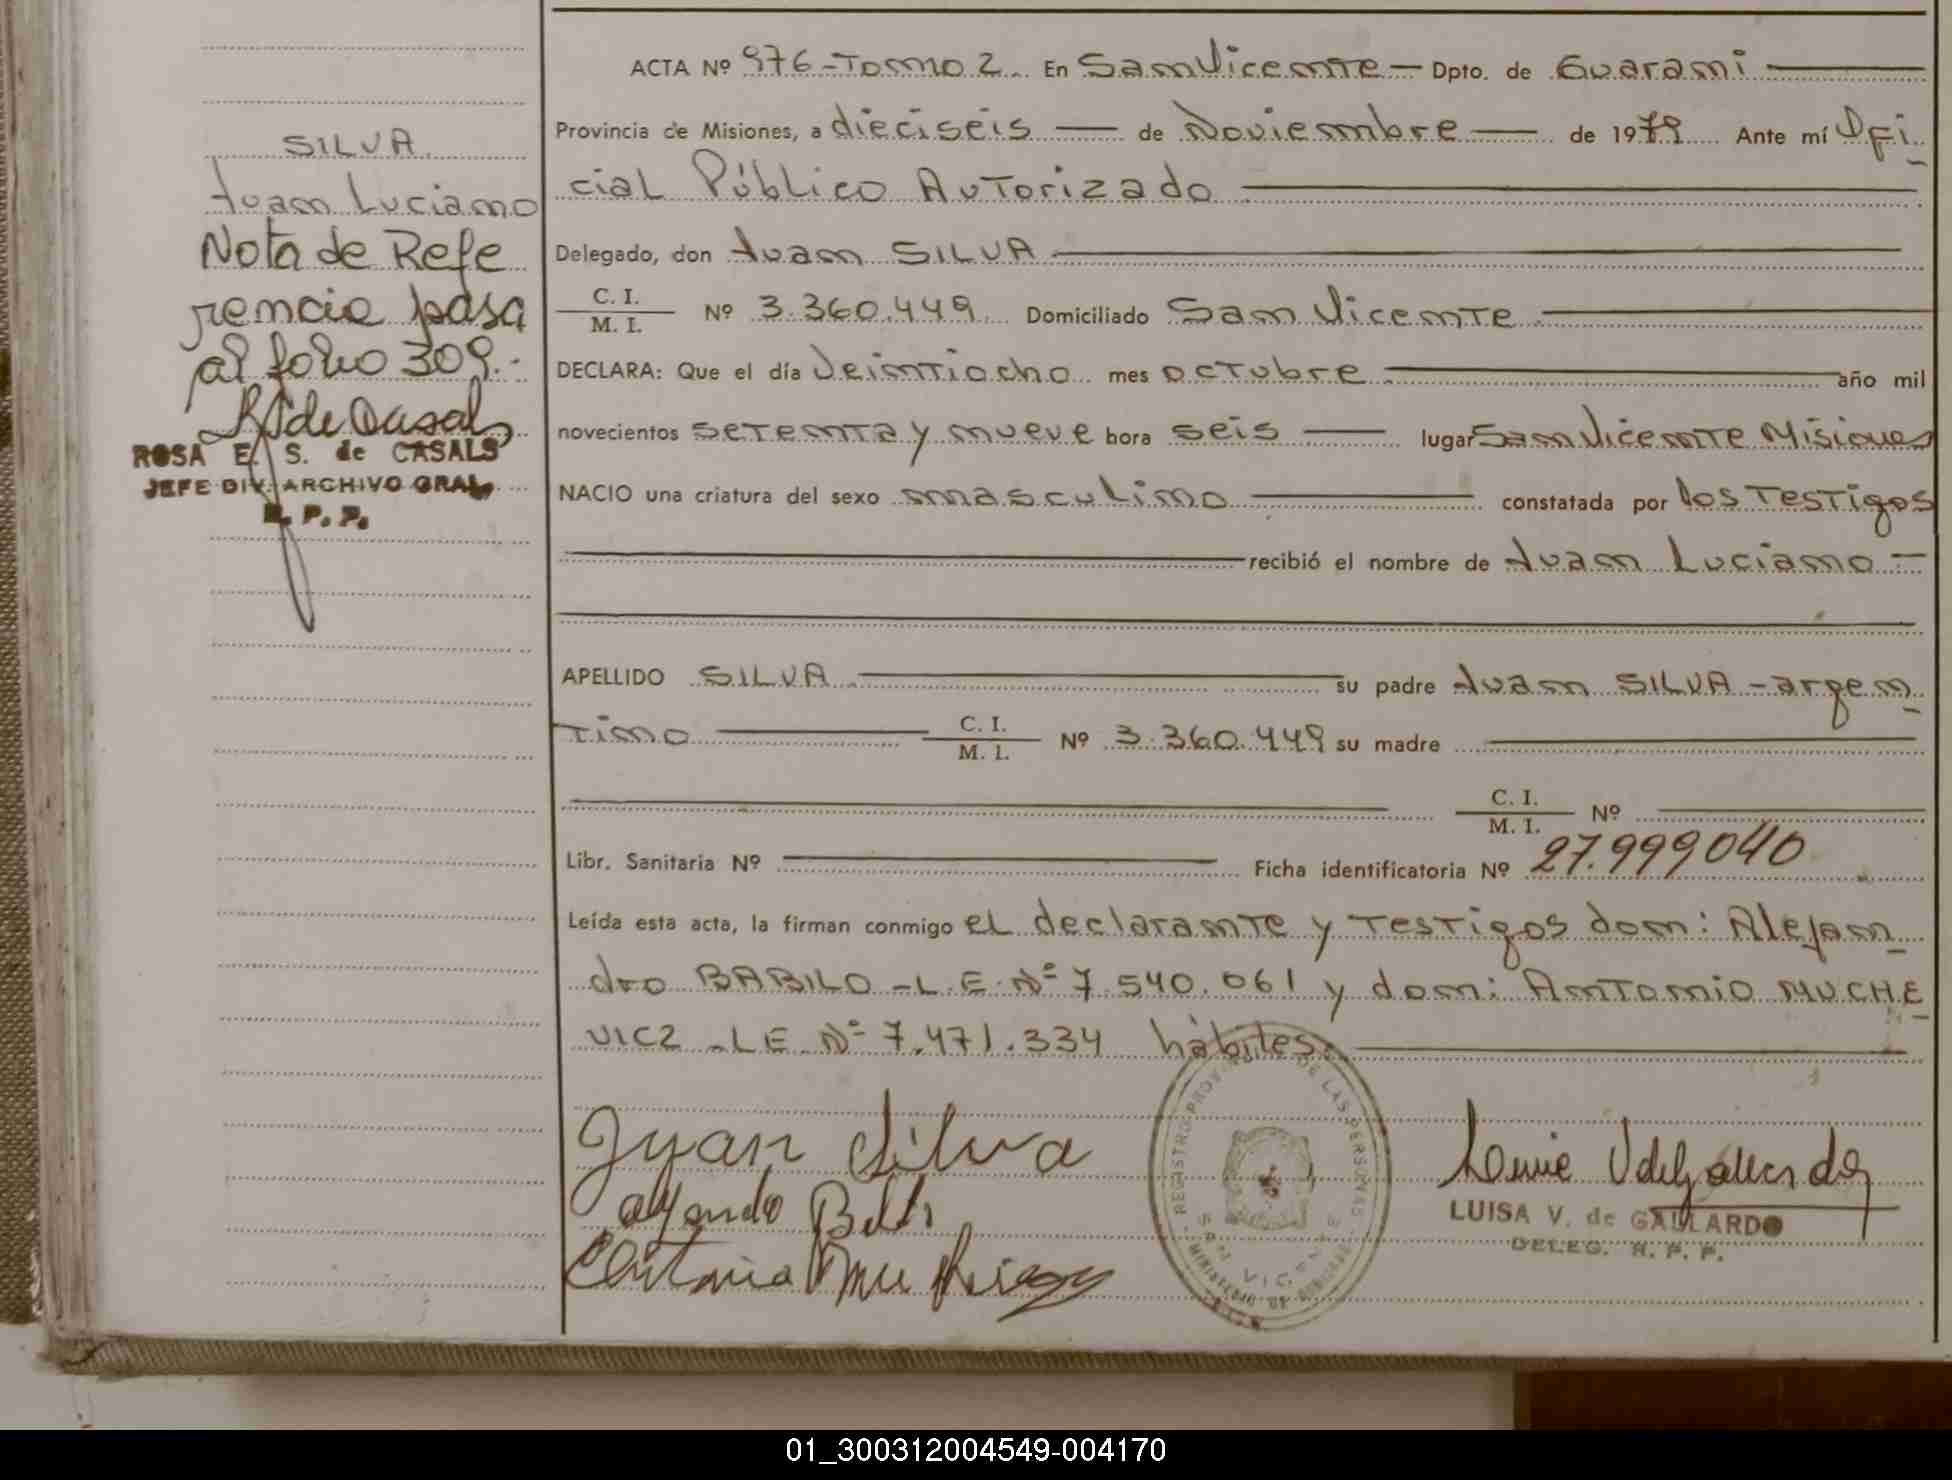 SILVA
Juan Luciano
Nota de Refe
rencia pasa
al folio 309.-
ROSA E. S. de CASALS
JEFE DIV. ARCHIVO GRAL.
R. P. P.
ACTA Nº 976-Tomo 2 En San Vicente — Dpto. de Guaraní
Provincia de Misiones, a dieciseis — de Noviembre — de 1979 Ante mí Ofi
cial Público Autorizado
Delegado, don Juan SILVA
C. I.
M. I. Nº 3.360.449 Domiciliado San Vicente
DECLARA: Que el día Veintiocho mes octubre año mil
novecientos setenta y nueve hora seis — lugar San Vicente Misiones
NACIO una criatura del sexo masculino constatada por los testigos
recibió el nombre de Juan Luciano —
APELLIDO SILVA su padre Juan SILVA - argen
tino C. I.
M. I. Nº 3.360.449 su madre
C. I.
M. I. Nº
Libr. Sanitaria Nº Ficha identificatoria Nº 27.999040
Leída esta acta, la firman conmigo el declarante y testigos don: Alejan
dro BABILO - L.E. Nº 7.540.061 y don: Antonio MUCHE
VICZ - LE Nº 7.471.334 hábiles.
Juan Silva
REGISTRO PROVINCIAL DE LAS PERSONAS
SAN VICENTE
MINISTERIO DE GOBIERNO
LUISA V. de GALLARDO
DELEG. R. P. P.
01_300312004549-004170